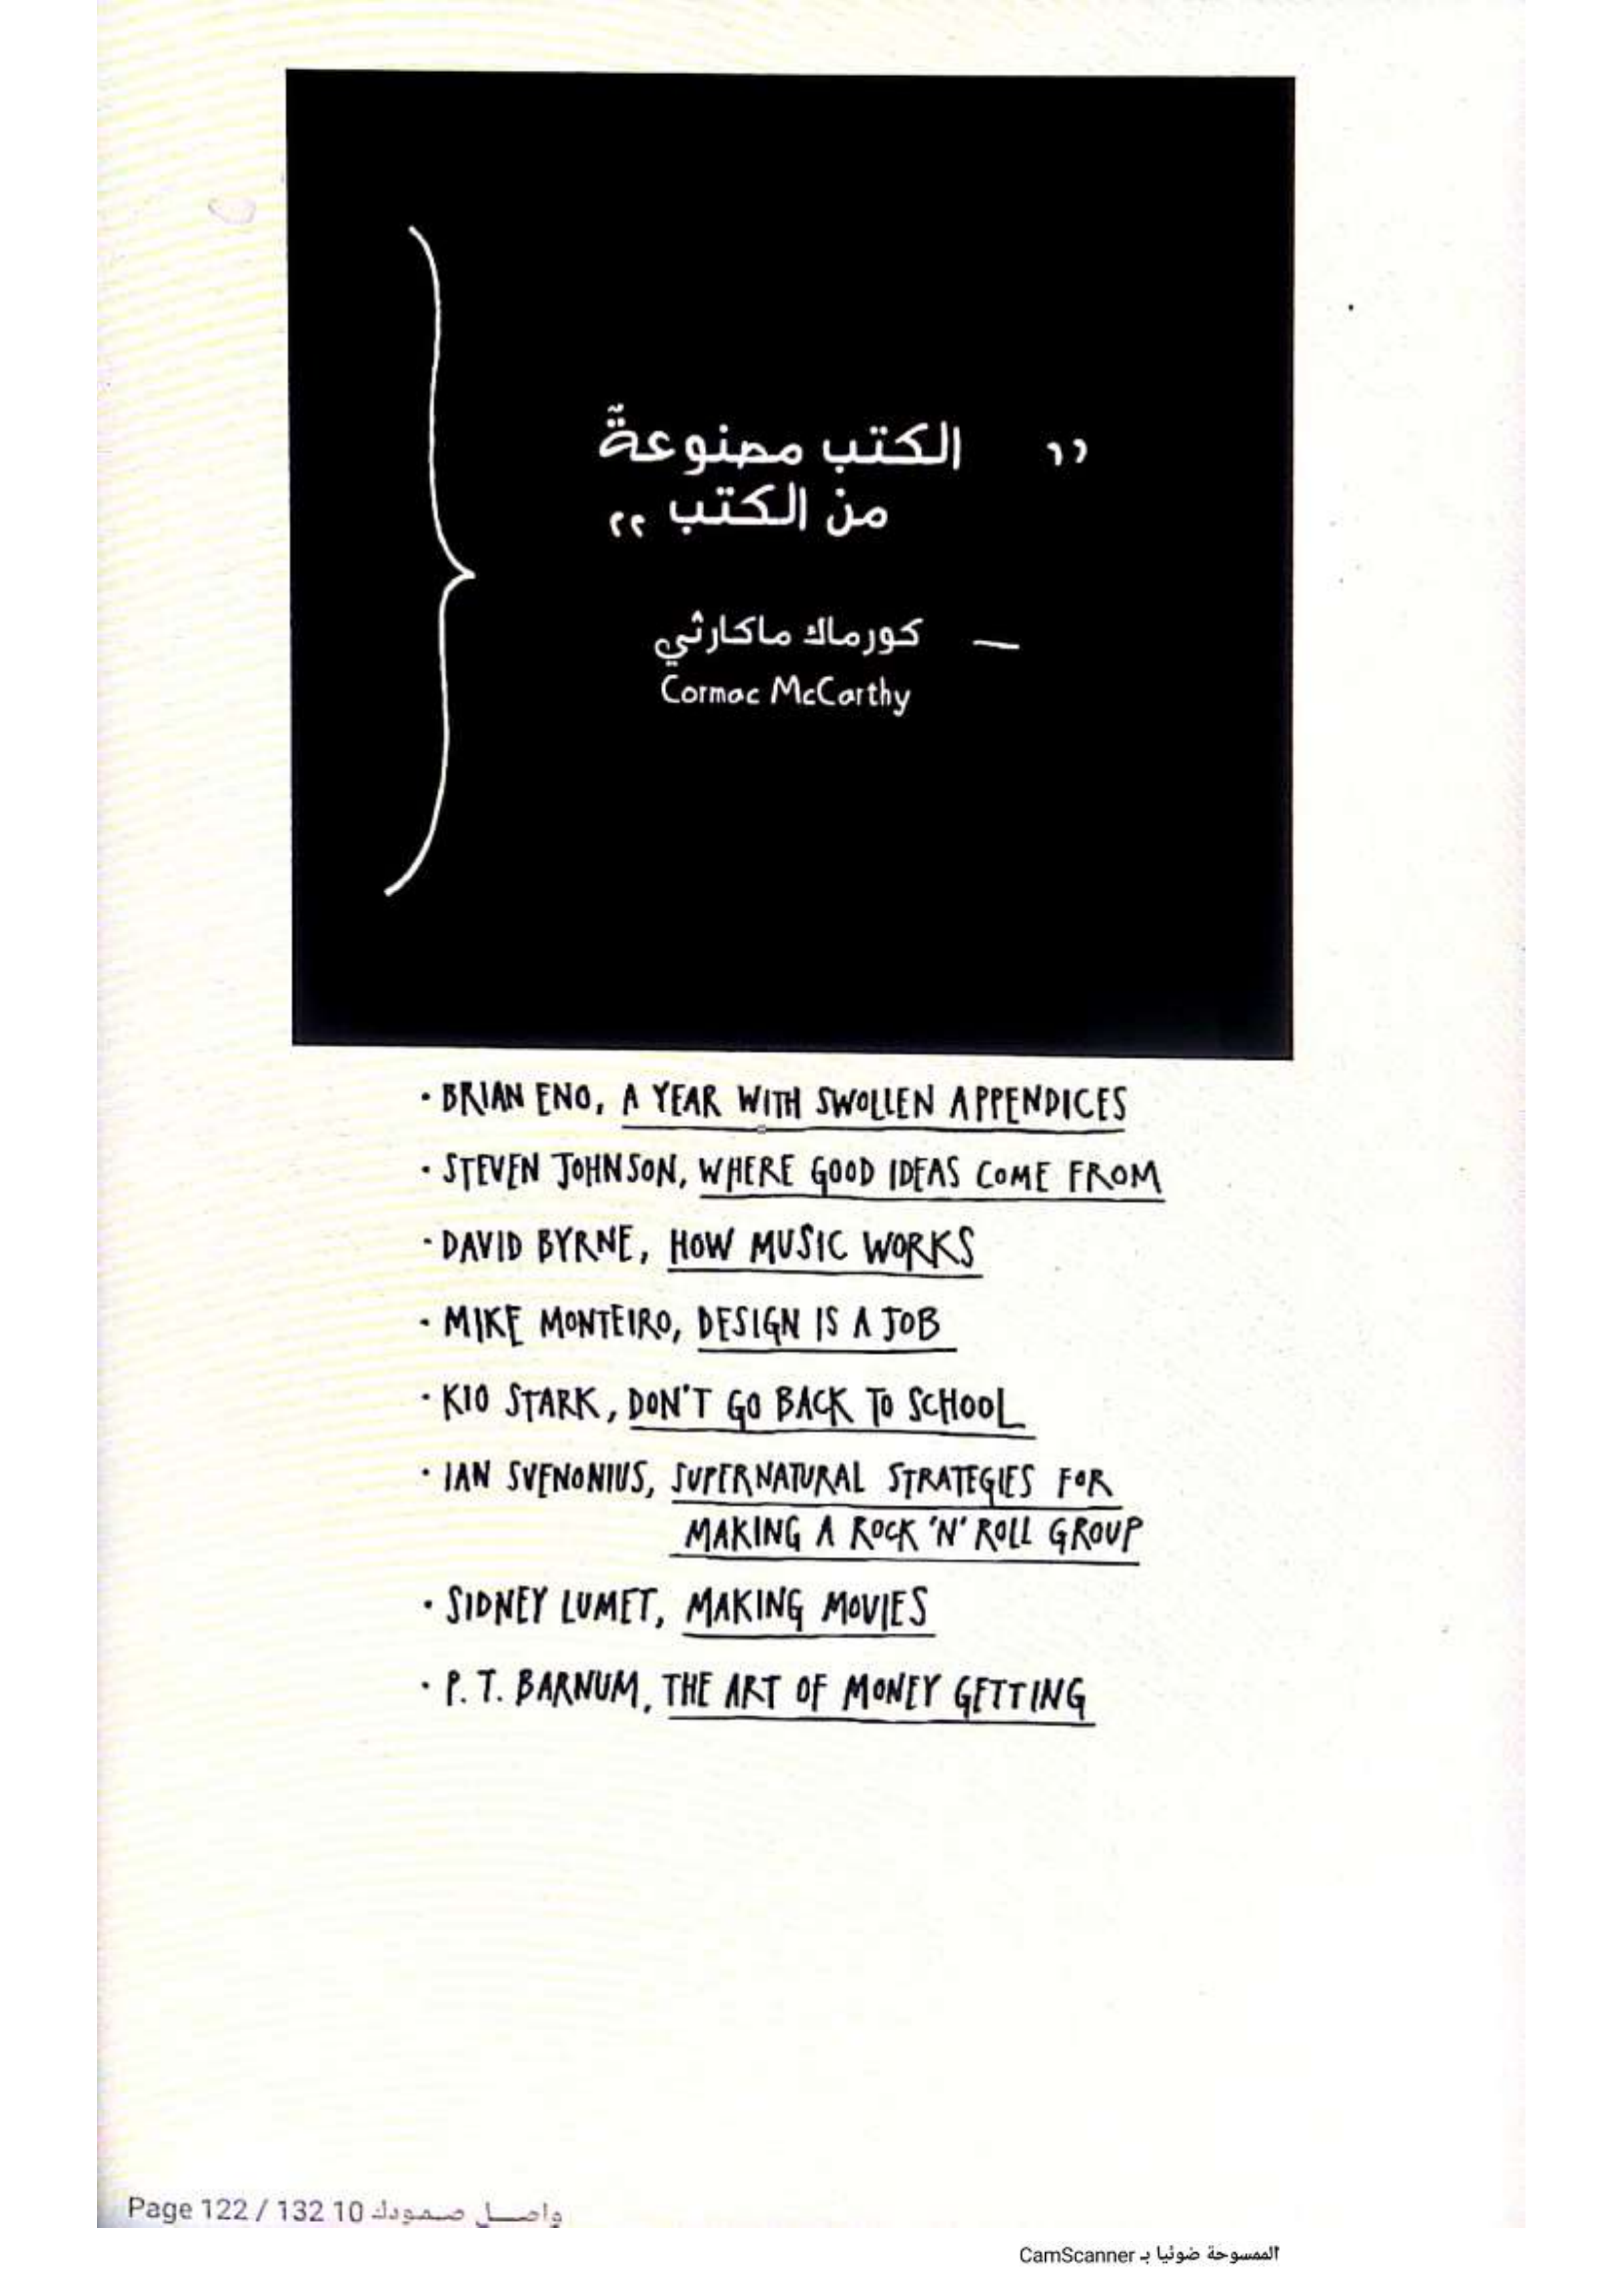 " الكتب مصنوعةٌ
من الكتب "
— كورماك ماكارثي
Cormac McCarthy
• BRIAN ENO, A YEAR WITH SWOLLEN APPENDICES
• STEVEN JOHNSON, WHERE GOOD IDEAS COME FROM
• DAVID BYRNE, HOW MUSIC WORKS
• MIKE MONTEIRO, DESIGN IS A JOB
• KIO STARK, DON'T GO BACK TO SCHOOL
• IAN SVENONIUS, SUPERNATURAL STRATEGIES FOR
MAKING A ROCK 'N' ROLL GROUP
• SIDNEY LUMET, MAKING MOVIES
• P. T. BARNUM, THE ART OF MONEY GETTING
Page 122 / 132 واصل صمودك 10
الممسوحة ضوئيا بـ CamScanner